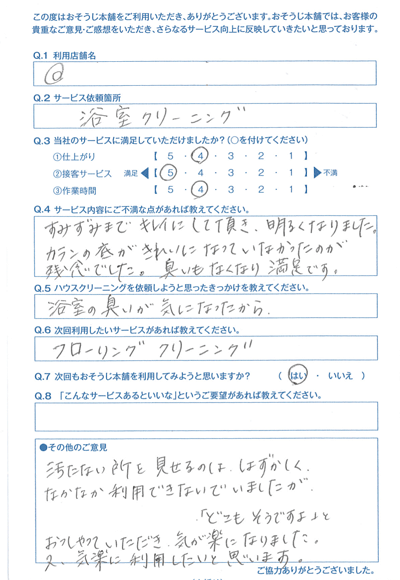 この度はおそうじ本舗をご利用いただき、ありがとうございます。おそうじ本舗では、お客様の
貴重なご意見・ご感想をいただき、さらなるサービス向上に反映していきたいと思っております。
Q.1 利用店舗名
Q.2 サービス依頼箇所
浴室クリーニング
Q.3 当社のサービスに満足していただけましたか？（○を付けてください）
①仕上がり 【 5 ・ 4 ・ 3 ・ 2 ・ 1 】
②接客サービス 満足 ◀【 5 ・ 4 ・ 3 ・ 2 ・ 1 】▶ 不満
③作業時間 【 5 ・ 4 ・ 3 ・ 2 ・ 1 】
Q.4 サービス内容にご不満な点があれば教えてください。
すみずみまで キレイにして頂き、明るくなりました。
カランの底がきれいになっていなかったのが
残念でした。臭いもなくなり満足です。
Q.5 ハウスクリーニングを依頼しようと思ったきっかけを教えてください。
浴室の臭いが気になったから.
Q.6 次回利用したいサービスがあれば教えてください。
フローリング クリーニング
Q.7 次回もおそうじ本舗を利用してみようと思いますか？ （ はい ・ いいえ ）
Q.8 「こんなサービスあるといいな」というご要望があれば教えてください。
●その他のご意見
汚たない所を見せるのは、はずかしく、
なかなか利用できないでいましたが、
「どこも そうですよ」と
おっしゃっていただき、気が楽になりました。
又、気楽に利用したいと思います。
ご協力ありがとうございました。